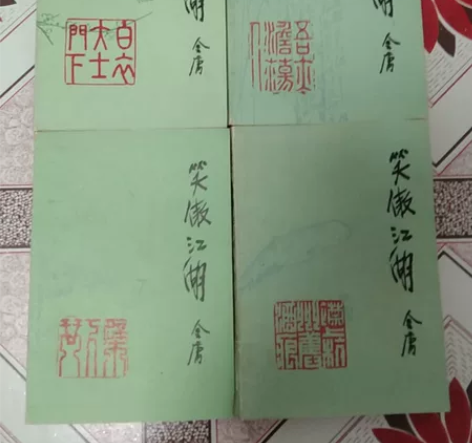 湖
金庸
白衣
大士
門下
湖
金庸
吾亦
澹蕩
人
笑傲江湖
金庸
笑傲江湖
金庸